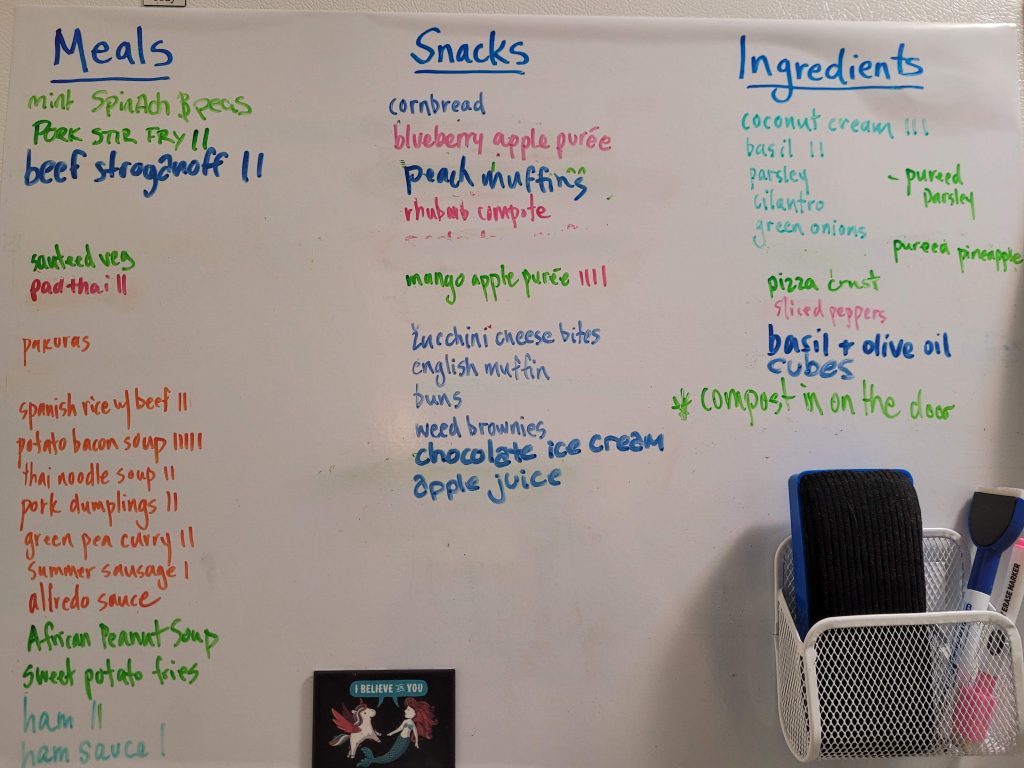 Meals
mint spinach & peas
PORK STIR FRY II
beef stroganoff II
sauteed veg
pad thai II
pakuras
spanish rice w/ beef II
potato bacon soup IIIII
thai noodle soup II
pork dumplings II
green pea curry II
summer sausage I
alfredo sauce
African Peanut Soup
sweet potato fries
ham II
ham sauce I
Snacks
cornbread
blueberry apple purée
peach muffins
rhubarb compote
mango apple purée IIII
zucchini cheese bites
english muffin
buns
weed brownies
chocolate ice cream
apple juice
Ingredients
coconut cream III
basil II
parsley
cilantro
green onions
- pureed
parsley
pureed pineapple
pizza crust
sliced peppers
basil + olive oil
cubes
* compost in on the door
I BELIEVE IN YOU
ERASE MARKER